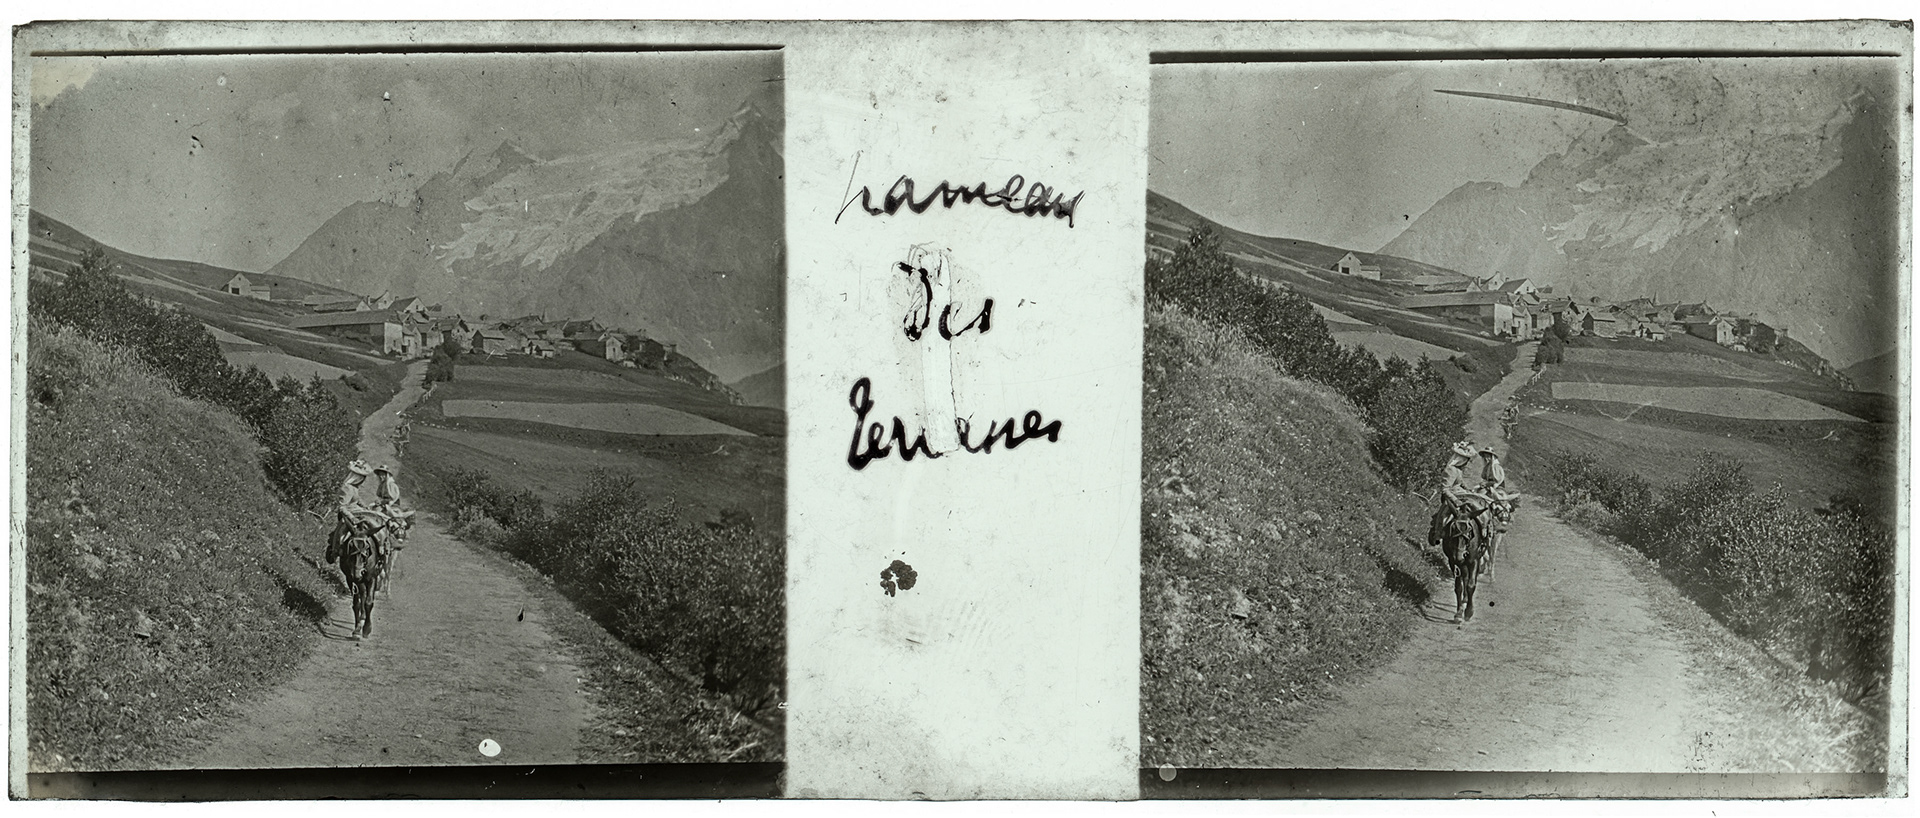 hameau
Des
Terrasses